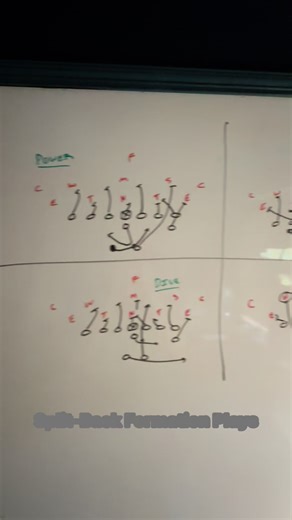 POWER
F
W
M
S
C
C
E
T
N
T
E
DIVE
F
W
M
S
C
C
E
T
N
T
E
C
Split-Back Formation Plays